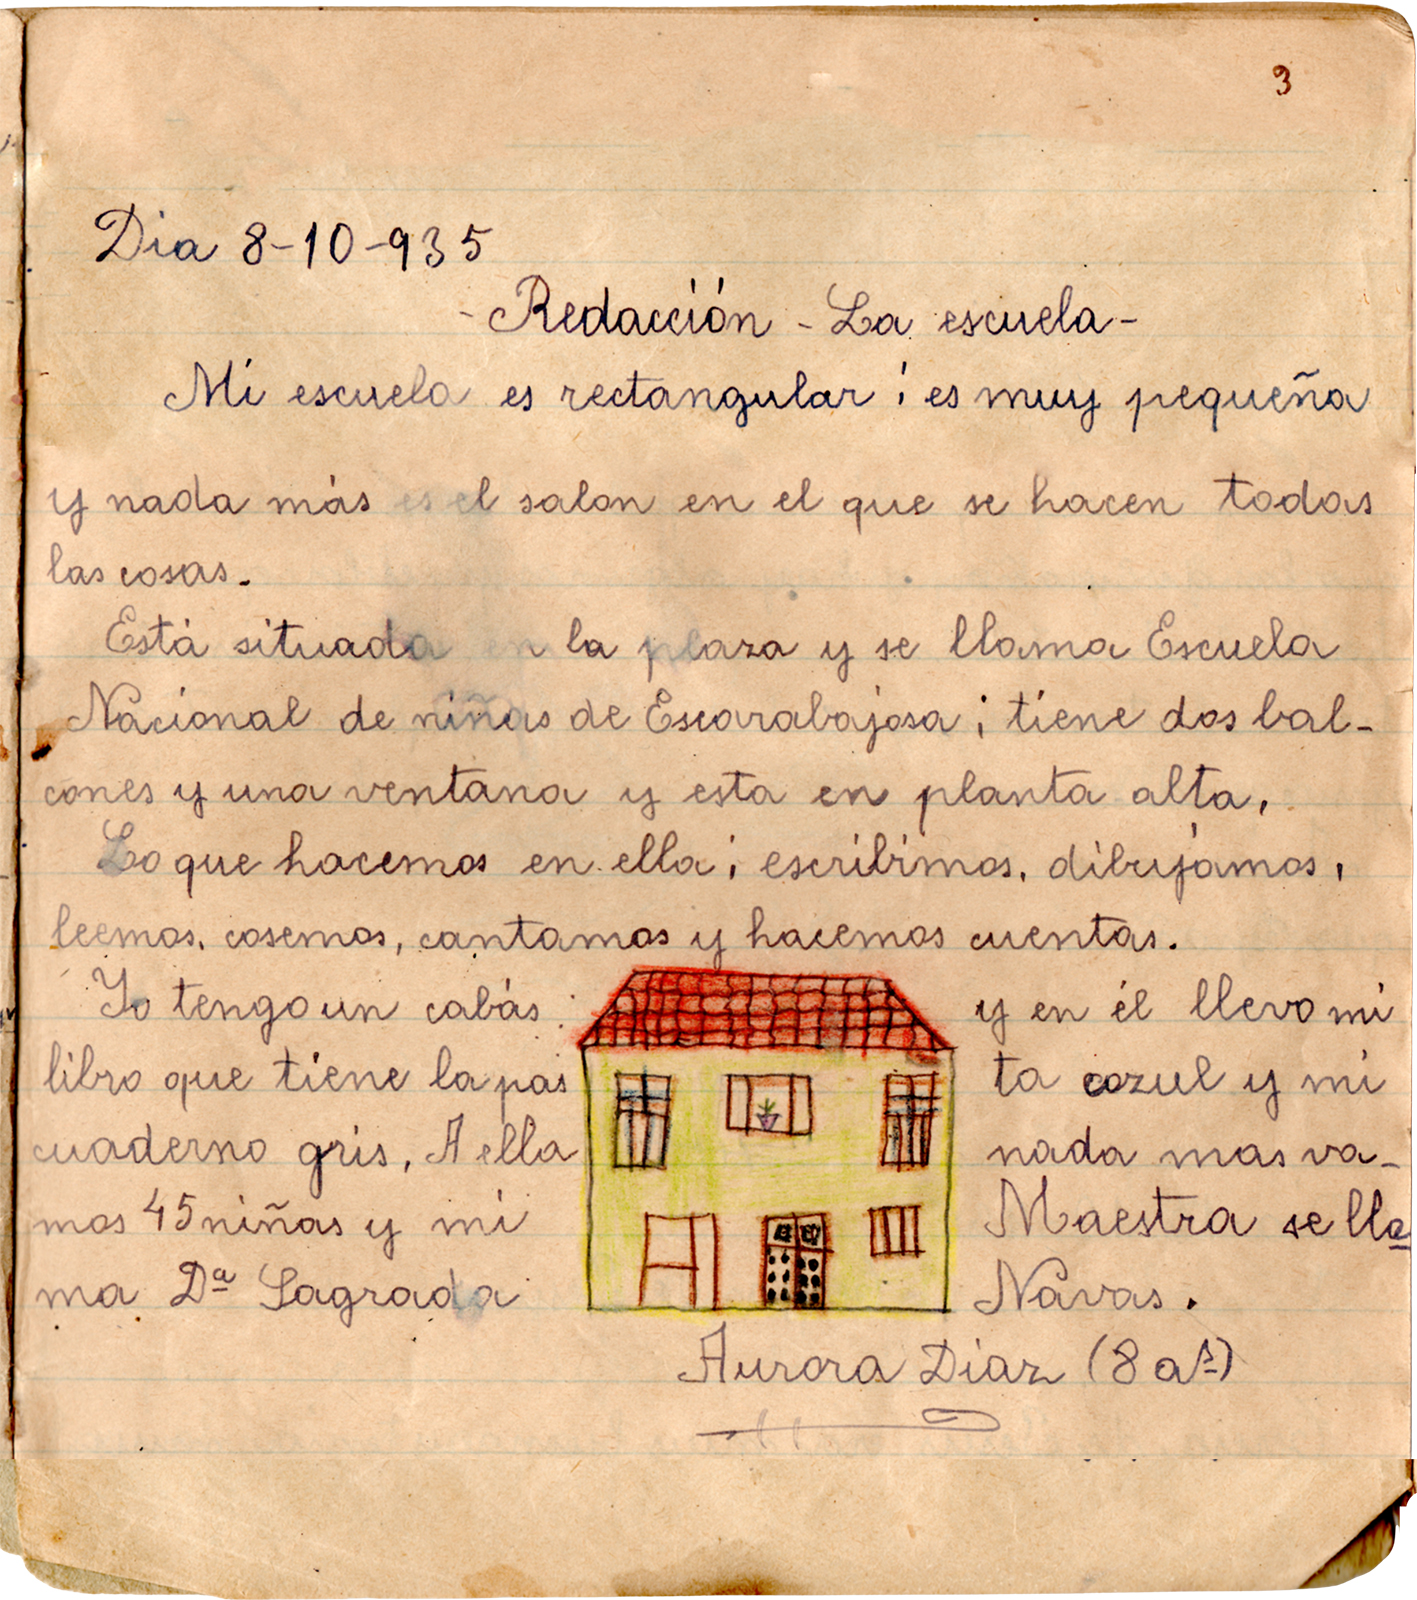 3
Dia 8-10-935
- Redacción - La escuela -
Mi escuela es rectangular ; es muy pequeña
y nada más es el salon en el que se hacen todas
las cosas.
Està situada en la plaza y se llama Escuela
Nacional de niñas de Escarabajosa ; tiene dos bal-
cones y una ventana y esta en planta alta.
Lo que hacemos en ella ; escribimos, dibujamos,
leemos, cosemos, cantamos y hacemos cuentas.
Yo tengo un cabás y en él llevo mi
libro que tiene la pas ta azul y mi
cuaderno gris, A ella nada mas va-
mos 45 niñas y mi Maestra se lla
ma Dª Sagrada Navas.
Aurora Diaz (8 aˢ)